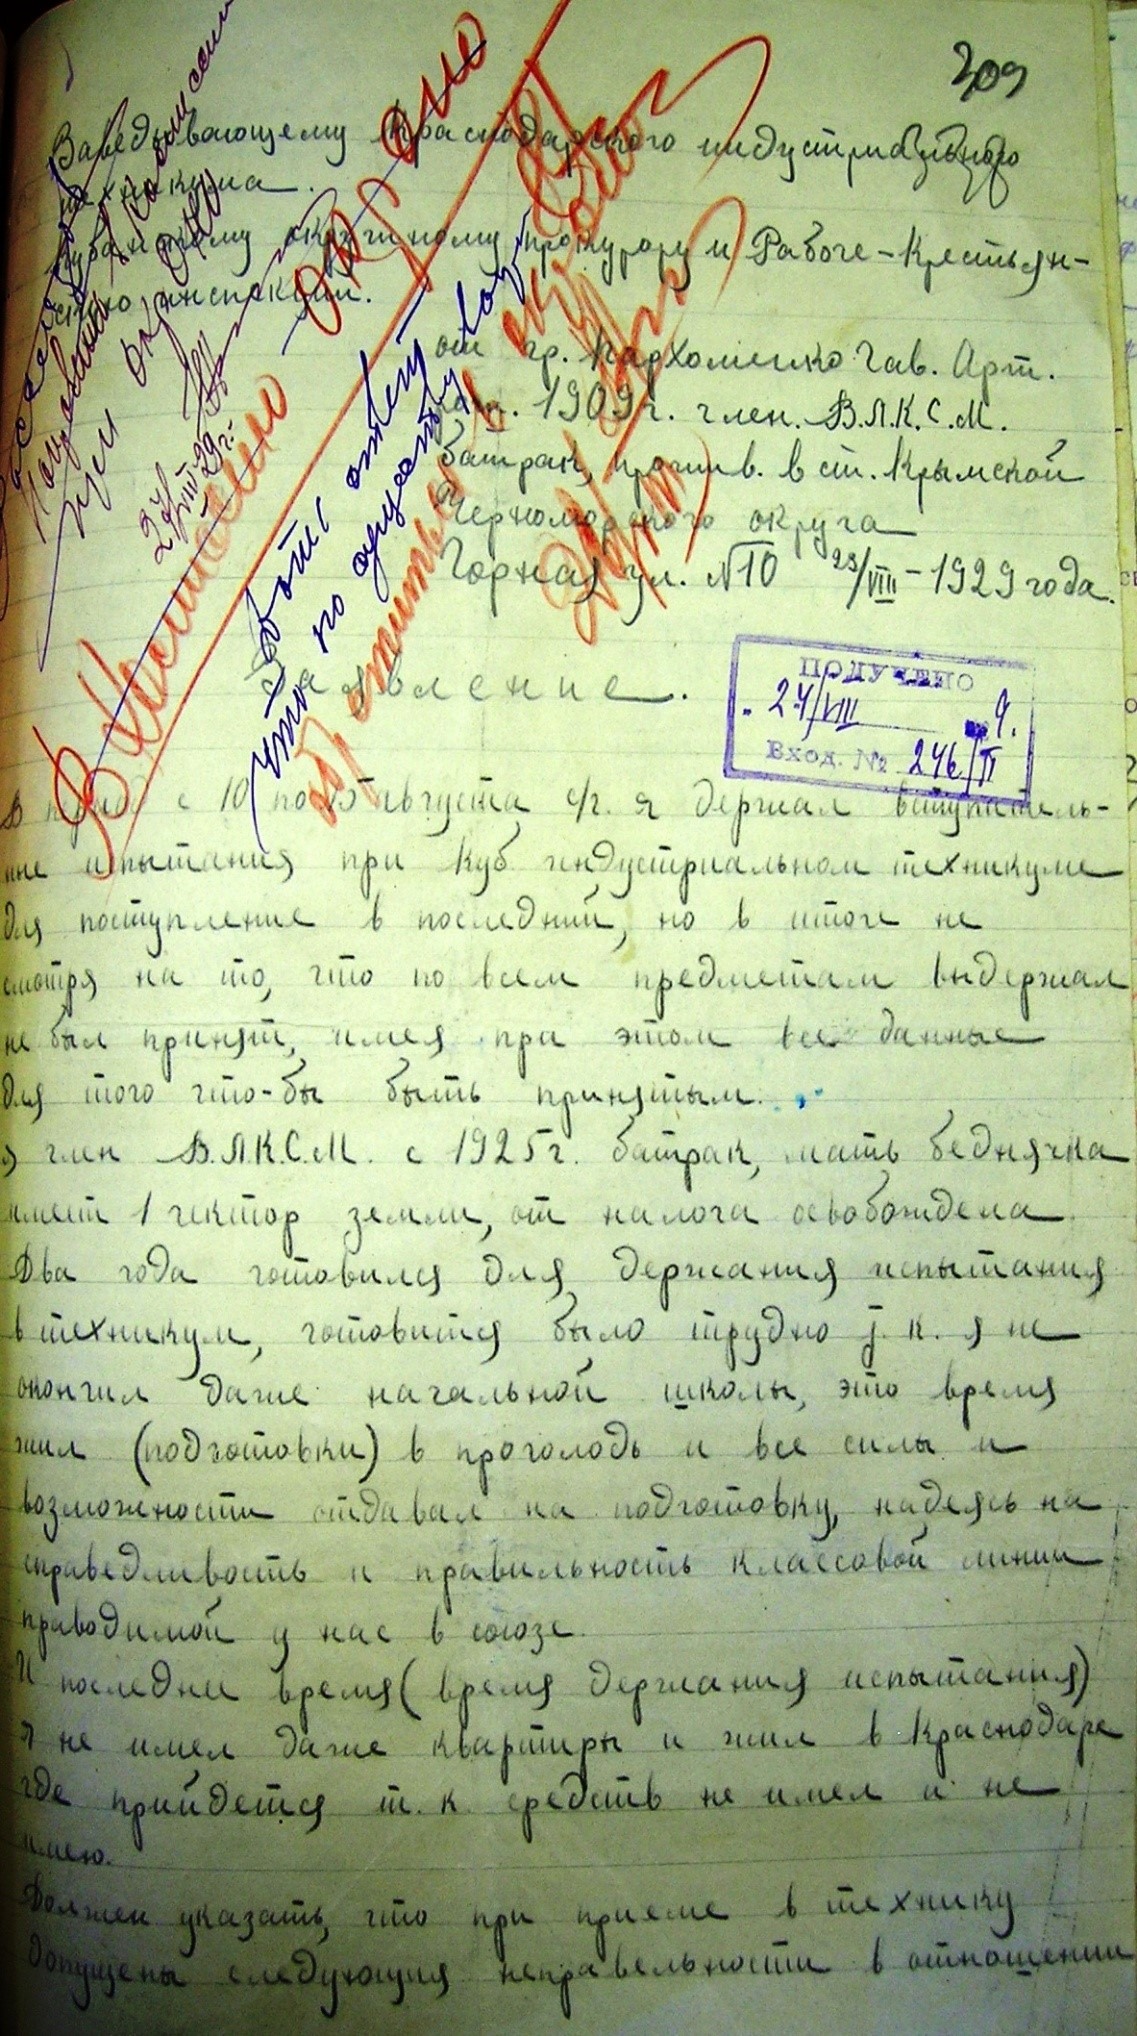 309
Заведывающему Краснодарского индустриального
техникума.
Кубанскому окружному прокурору и Рабоче-Крестьян-
скую инспекцию.
от гр. Пархоменко Гав. Арт.
1909 г. член. В.Л.К.С.М.
батрак, прожив. в ст. Крымской
Черноморского округа
Горная ул. №10 23/VIII-1929 года.
27/VIII-29 г.
Заявление.
ПОЛУЧЕНО
27/VIII 9.
Вход. № 246/П
В период с 10 по 15 августа с/г. я держал вступитель-
ные испытания при Куб индустриальном техникуме
для поступление в последний, но в итоге не
смотря на то, что по всем предметам выдержал
не был принят, имея при этом все данные
для того что-бы быть принятым.
я член В.Л.К.С.М. с 1925 г. батрак, мать беднячка
имеет 1 гектор земли, от налога освобождена
Два года готовился для держания испытания
в техникум, готовится было трудно т. к. я не
окончил даже начальной школы, это время
жил (подготовки) в проголодь и все силы и
возможности отдавал на подготовку, надеясь на
справедливость и правильность классовой линии
праводимой у нас в союзе.
И последни время (время держания испытания)
я не имел даже квартиры и жил в Краснодаре
где прийдется т. к. средств не имел и не
имею.
Должен указать, что при приеме в технику
допущены следующия неправельности в отношении